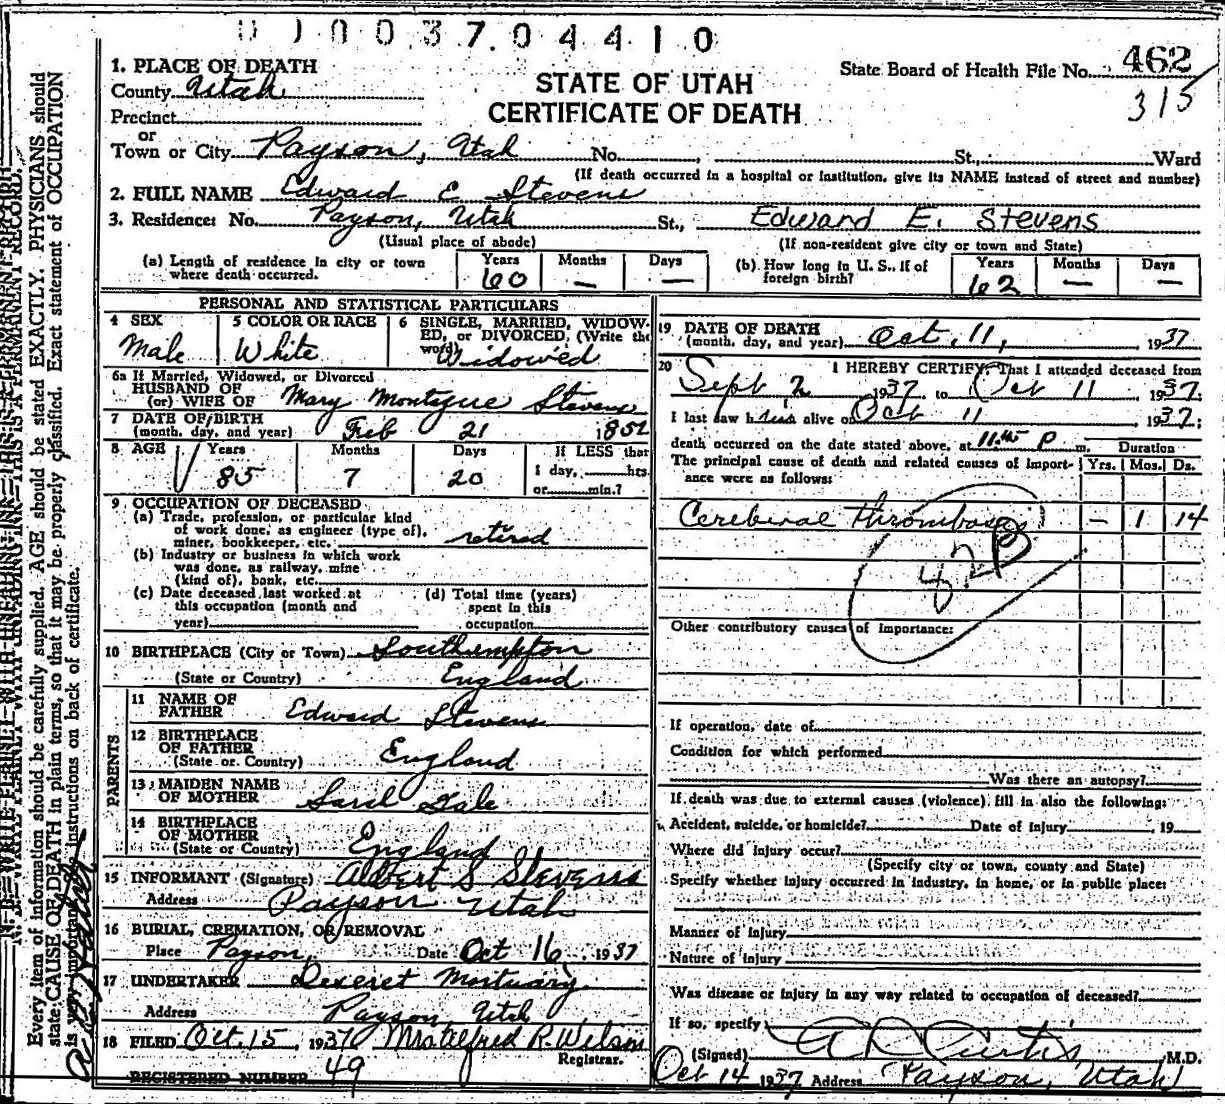 0 1 0 0 3 7 0 4 4 1 0
State Board of Health File No. 462
315
STATE OF UTAH
CERTIFICATE OF DEATH
1. PLACE OF DEATH
County Utah
Precinct
or
Town or City Payson, Utah No. , St., Ward
(If death occurred in a hospital or institution, give its NAME instead of street and number)
2. FULL NAME Edward E Stevens
3. Residence: No. Payson, Utah St., Edward E. Stevens
(Usual place of abode) (If non-resident give city or town and State)
(a) Length of residence in city or town where death occurred. Years 60 Months — Days —
(b) How long in U. S., if of foreign birth? Years 62 Months — Days —
PERSONAL AND STATISTICAL PARTICULARS
4 SEX Male
5 COLOR OR RACE White
6 SINGLE, MARRIED, WIDOWED, or DIVORCED, (Write the word) Widowed
6a If Married, Widowed, or Divorced
HUSBAND OF
(or) WIFE OF Mary Montague Stevens
7 DATE OF BIRTH
(month, day, and year) Feb 21 1852
8 AGE Years 85 Months 7 Days 20 If LESS than
1 day, hrs.
or min.?
9 OCCUPATION OF DECEASED
(a) Trade, profession, or particular kind
of work done, as engineer (type of),
miner, bookkeeper, etc. retired
(b) Industry or business in which work
was done, as railway, mine
(kind of), bank, etc.
(c) Date deceased last worked at
this occupation (month and
year)
(d) Total time (years)
spent in this
occupation
10 BIRTHPLACE (City or Town) Southampton
(State or Country) England
PARENTS
11 NAME OF
FATHER Edward Stevens
12 BIRTHPLACE
OF FATHER
(State or Country) England
13 MAIDEN NAME
OF MOTHER
14 BIRTHPLACE
OF MOTHER
(State or Country) England
15 INFORMANT (Signature) Albert S Stevens
Address Payson Utah
16 BURIAL, CREMATION, OR REMOVAL
Place Payson, Date Oct 16, 1937
17 UNDERTAKER Deseret Mortuary
Address Payson, Utah
18 FILED Oct. 15, 1937 Mrs Alfred R. Wilson
Registrar.
REGISTERED NUMBER 49
19 DATE OF DEATH
(month, day, and year) Oct. 11, 1937
20 I HEREBY CERTIFY, That I attended deceased from
Sept 2 1937 to Oct 11 1937.
I last saw him alive on Oct 11 1937;
death occurred on the date stated above, at 11:45 P m.
Duration
The principal cause of death and related causes of importance were as follows: Yrs. Mos. Ds.
Cerebral Thrombosis — 1 14
82B
Other contributory causes of importance:
If operation, date of
Condition for which performed
Was there an autopsy?
If death was due to external causes (violence) fill in also the following:
Accident, suicide, or homicide? Date of injury 19
Where did injury occur?
(Specify city or town, county and State)
Specify whether injury occurred in industry, in home, or in public place:
Manner of injury
Nature of injury
Was disease or injury in any way related to occupation of deceased?
If so, specify
(Signed) A D Curtis M.D.
Oct 14 1937 Address Payson, Utah
N. B.—WRITE PLAINLY WITH UNFADING INK—THIS IS A PERMANENT RECORD.
Every item of information should be carefully supplied. AGE should be stated EXACTLY. PHYSICIANS should
state CAUSE OF DEATH in plain terms, so that it may be properly classified. Exact statement of OCCUPATION
is very important. See instructions on back of certificate.